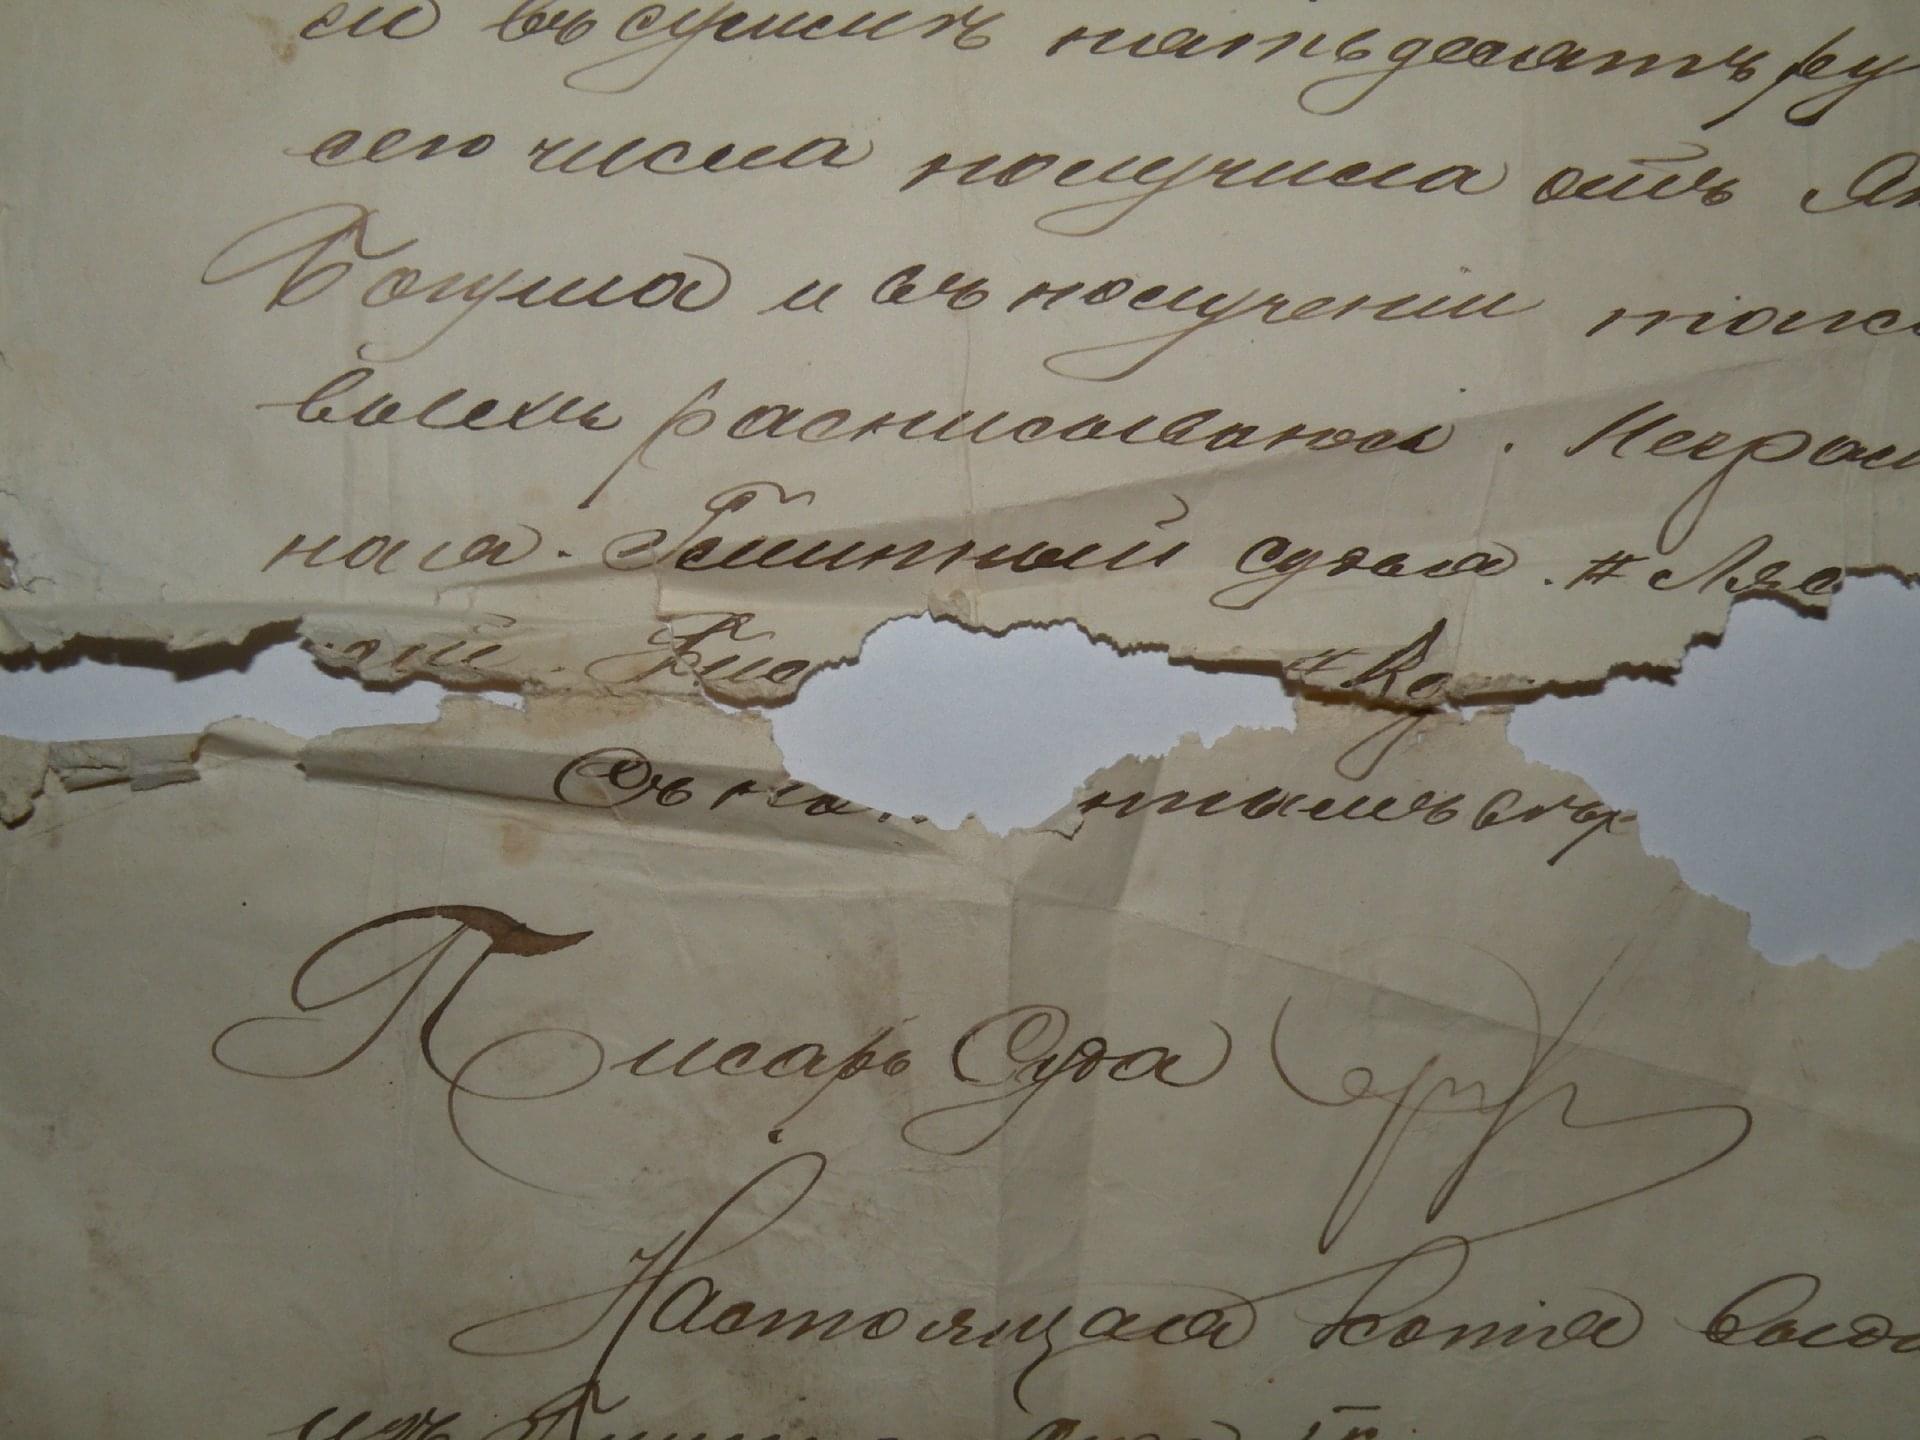 въ сумме пятьдесятъ ру
сего числа получила отъ Ян
Богуша и въ полученіи тако
выехъ расписываюсь. Неграмот
ная. Гминный судья. # Ляс
ой. Пис # Ко
Съ по тнымъ вѣр
Писарь Суда
Настоящая копія выда
изъ